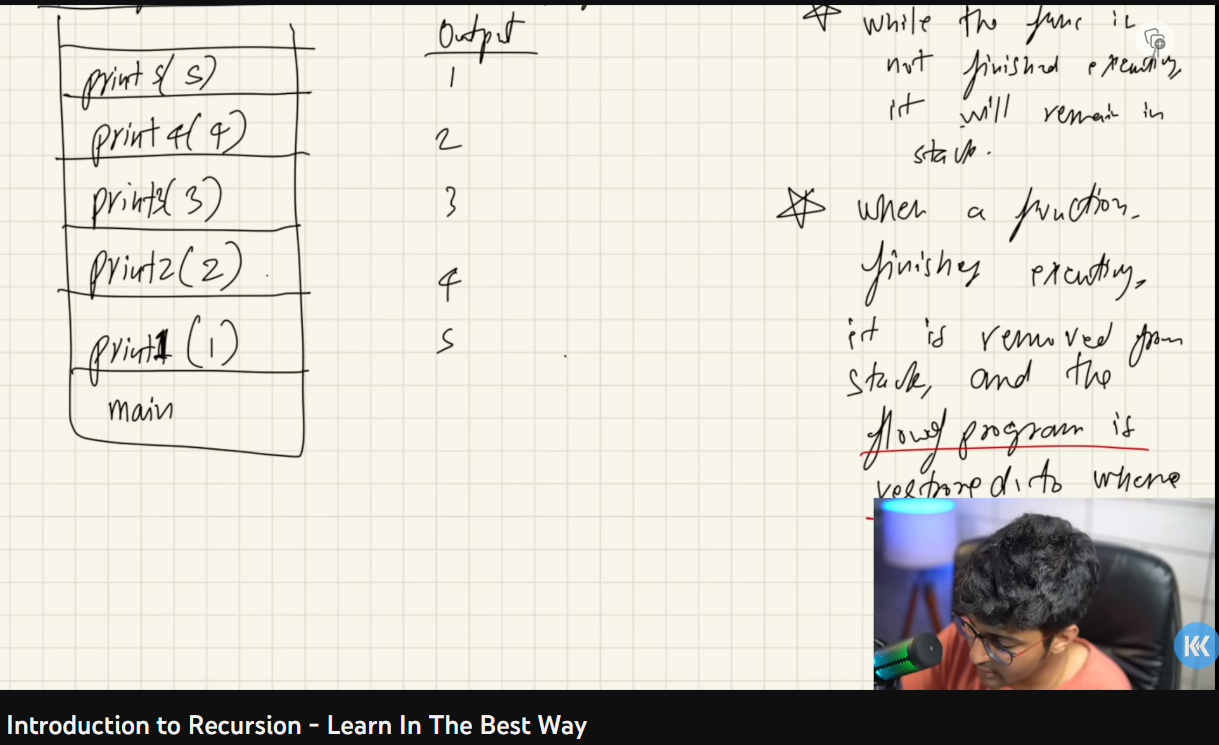 Output
print5(5)
1
print4(4)
2
print3(3)
3
print2(2)
4
print1(1)
5
main
while the func is
not finished executing
it will remain in
stack.
when a function
finishes executing,
it is removed from
stack, and the
flow of program is
restored to where
KK
Introduction to Recursion - Learn In The Best Way